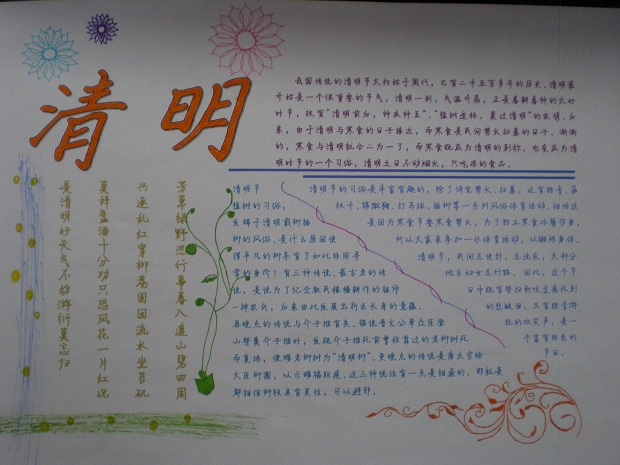 清 明
我国传统的清明节大约始于周代，已有二千五百多年的历史。清明最
开始是一个很重要的节气，清明一到，气温升高，正是春耕春种的大好
时节，故有“清明前后，种瓜种豆”。“植树造林，莫过清明”的农谚。后
来，由于清明与寒食的日子接近，而寒食是民间禁火扫墓的日子，渐渐
的，寒食与清明就合二为一了，而寒食既成为清明的别称，也变成为清
明时节的一个习俗，清明之日不动烟火，只吃凉的食品。
芳草绿野恣行事春入遥山碧四周
兴逐乱红穿柳巷困因流水坐苔矶
莫辞盏酒十分劝只恐风花一片红况
是清明好天气不妨游衍莫忘归
清明节
植树的习俗，
发端于清明戴柳插
柳的风俗。是什么原因使
得平凡的柳条有了如此非同寻
常的身价？有三种传说，最古老的传
说，是说为了纪念教民稼穑耕作的祖师
一种农氏，后来由此发展出祈求长寿的意蕴。
再晚点的传说与介子推有关。据说晋文公率众臣登
山祭奠介子推时，发现介子推死前曾经靠过的老柳树死
而复活，便赐老柳树为“清明柳”。更晚点的传说是唐太宗给
大臣柳圈，以示赐福驱疫。这三种说法有一点是相通的，那就是
都相信柳枝具有灵性，可以避邪。
清明节的习俗是丰富有趣的，除了讲究禁火、扫墓，还有踏青、荡
秋千、蹴鞠、打马球、插柳等一系列风俗体育活动。相传这
是因为寒食节要寒食禁火，为了防止寒食冷餐伤身，
所以大家来参加一些体育活动，以锻炼身体。
清明节，民间忌使针，忌洗衣，大部分
地区妇女忌行路。因此，这个节
日中既有祭扫新坟生离死别
的悲酸泪，又有踏青游
玩的欢笑声，是一
个富有特色的
节日。